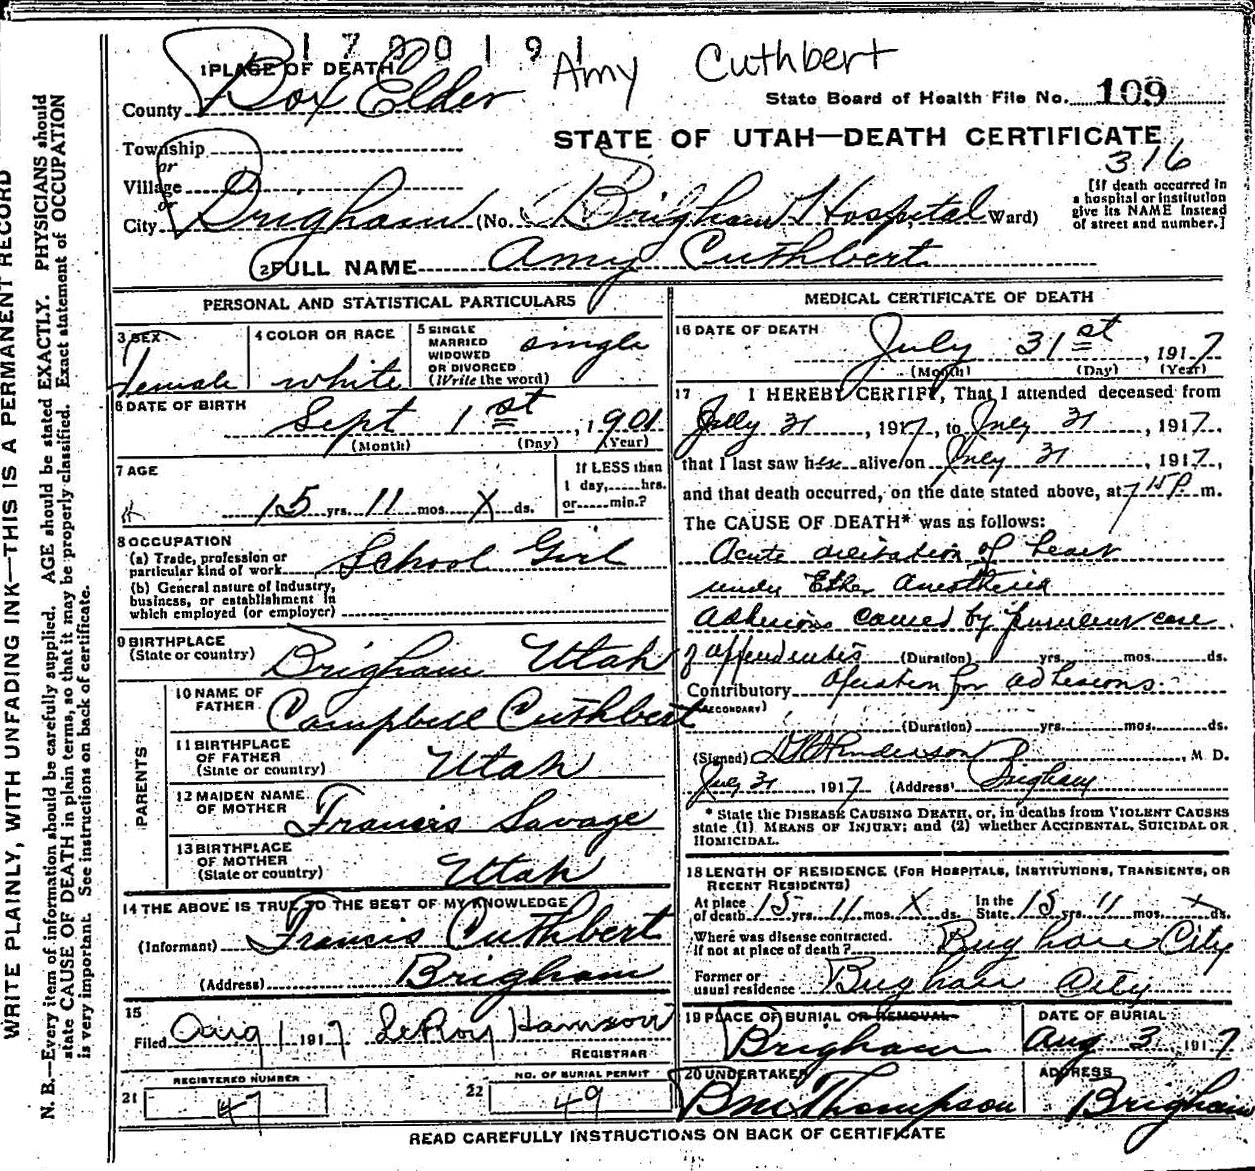 1700191
Amy Cuthbert
1 PLACE OF DEATH
County Box Elder
State Board of Health File No. 109
Township
or
Village
or
City Brigham (No. Brigham Hospital Ward)
STATE OF UTAH—DEATH CERTIFICATE
316
[If death occurred in
a hospital or institution
give its NAME instead
of street and number.]
2 FULL NAME Amy Cuthbert
PERSONAL AND STATISTICAL PARTICULARS
3 SEX
female
4 COLOR OR RACE
white
5 SINGLE
MARRIED
WIDOWED
OR DIVORCED
(Write the word)
single
6 DATE OF BIRTH
Sept 1st, 1901
(Month) (Day) (Year)
7 AGE
15 yrs. 11 mos. X ds.
If LESS than
1 day, hrs.
or min.?
8 OCCUPATION
(a) Trade, profession or
particular kind of work School Girl
(b) General nature of industry,
business, or establishment in
which employed (or employer)
9 BIRTHPLACE
(State or country) Brigham Utah
PARENTS
10 NAME OF
FATHER Campbell Cuthbert
11 BIRTHPLACE
OF FATHER
(State or country) Utah
12 MAIDEN NAME
OF MOTHER Francis Savage
13 BIRTHPLACE
OF MOTHER
(State or country) Utah
14 THE ABOVE IS TRUE TO THE BEST OF MY KNOWLEDGE
(Informant) Francis Cuthbert
(Address) Brigham
15
Filed Aug 1 1917 LeRoy Hamson
REGISTRAR
21 REGISTERED NUMBER
47
22 NO. OF BURIAL PERMIT
49
MEDICAL CERTIFICATE OF DEATH
16 DATE OF DEATH
July 31st, 1917
(Month) (Day) (Year)
17 I HEREBY CERTIFY, That I attended deceased from
July 31, 1917, to July 31, 1917,
that I last saw her alive on July 31, 1917,
and that death occurred, on the date stated above, at 7 15 P. m.
The CAUSE OF DEATH* was as follows:
Acute dilitation of heart
under Ether Anesthesia
Adhesions caused by purulent case
of appendicitis (Duration) yrs. mos. ds.
Contributory Operation for adhesions
(SECONDARY)
(Duration) yrs. mos. ds.
(Signed) Henderson, M D.
July 31 1917 (Address) Brigham
* State the DISEASE CAUSING DEATH, or, in deaths from VIOLENT CAUSES
state (1) MEANS OF INJURY; and (2) whether ACCIDENTAL, SUICIDAL OR
HOMICIDAL.
18 LENGTH OF RESIDENCE (FOR HOSPITALS, INSTITUTIONS, TRANSIENTS, OR
RECENT RESIDENTS)
At place
of death 15 yrs. 11 mos. X ds. In the
State 15 yrs. 11 mos. X ds.
Where was disease contracted.
if not at place of death? Brigham City
Former or
usual residence Brigham City
19 PLACE OF BURIAL OR REMOVAL
Brigham
DATE OF BURIAL
Aug 3 1917
20 UNDERTAKER
Thompson
ADDRESS
Brigham
READ CAREFULLY INSTRUCTIONS ON BACK OF CERTIFICATE
WRITE PLAINLY, WITH UNFADING INK—THIS IS A PERMANENT RECORD
N. B.—Every item of information should be carefully supplied. AGE should be stated EXACTLY. PHYSICIANS should
state CAUSE OF DEATH in plain terms, so that it may be properly classified. Exact statement of OCCUPATION
is very important. See instructions on back of certificate.